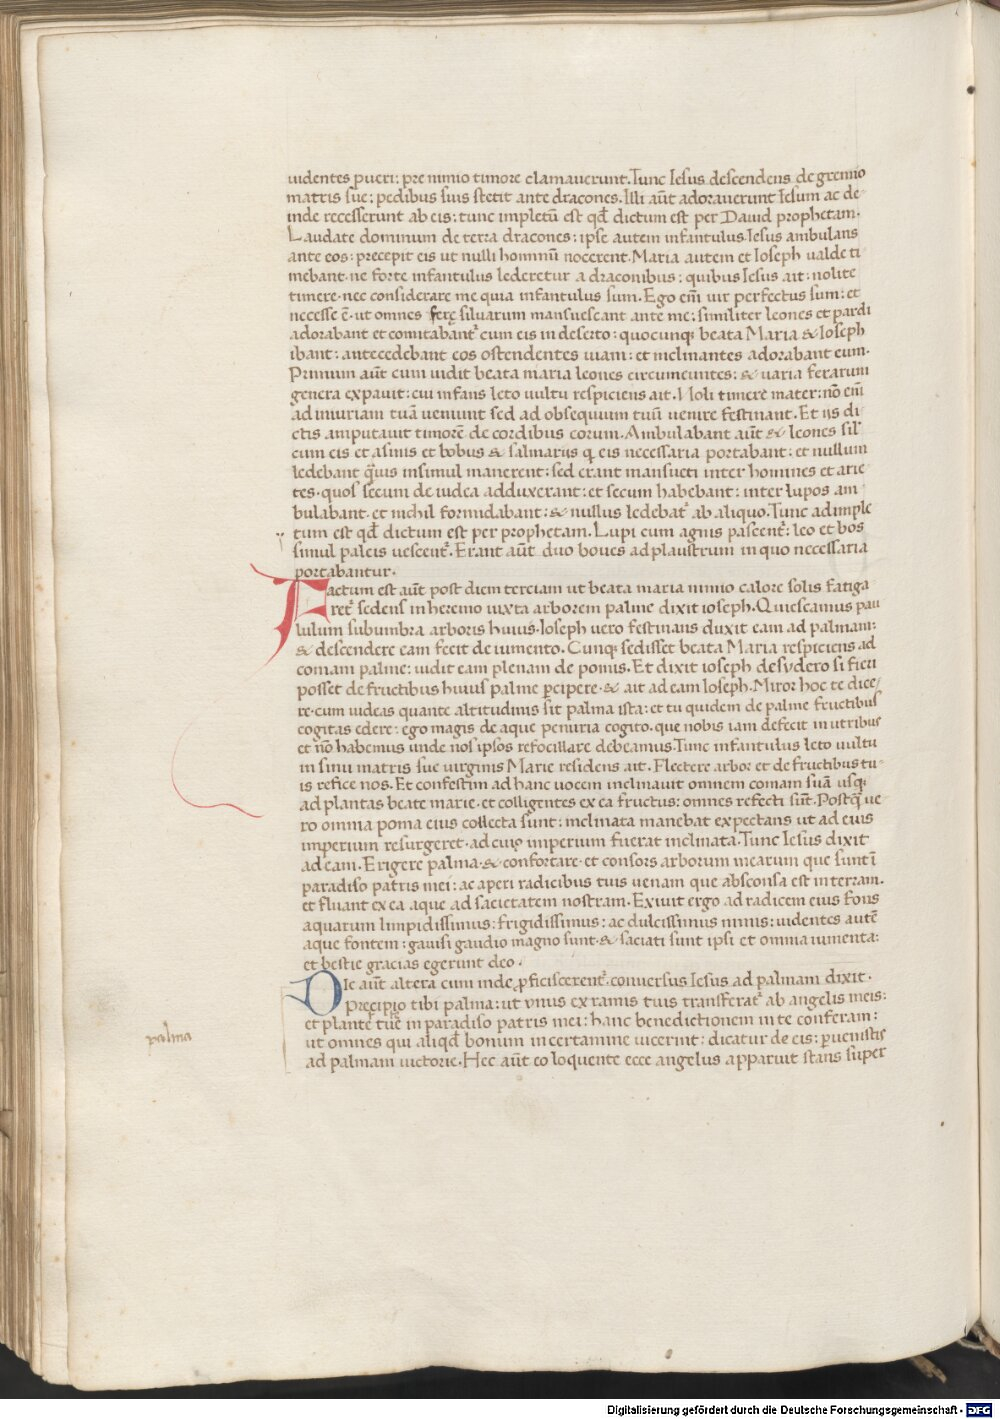 uidentes pueri: pre nimio timore clamauerunt. Tunc Iesus descendens de gremio
matris sue: pedibus suis stetit ante dracones. Illi aūt adorauerunt Iesum ac de-
inde recesserunt ab eis: tunc impletū est qđ dictum est per Dauid prophetam.
Laudate dominum de terra dracones: ipse autem infantulus Iesus ambulans
ante eos: precepit eis ut nulli hominū nocerent. Maria autem et Ioseph ualde ti
mebant. ne forte infantulus lederetur a draconibus: quibus Iesus ait: nolite
timere. nec considerare me quia infantulus sum. Ego em̄ uir perfectus sum: et
necesse ē. ut omnes ferę siluarum mansuescant ante me: similiter leones et pardi
adorabant et comitabant᷑ cum eis in deserto: quocunq; beata Maria & Ioseph
ibant: antecedebant eos ostendentes uiam: et inclinantes adorabant eum.
Primum aūt cum uidit beata maria leones circumeuntes: & uaria ferarum
genera expauit: cui infans leto uultu respiciens ait. Noli timere mater: nō em̄
ad iniuriam tuā ueniunt sed ad obsequium tuū uenire festinant. Et ijs di
ctis amputauit timorē de cordibus eorum. Ambulabant aūt & leones sil᷑
cum eis et asinis et bobus & salmarijs q̨ eis necessaria portabant: et nullum
ledebant q̃uis insimul manerent: sed erant mansueti inter homines et arie
tes. quos secum de iudea adduxerant: et secum habebant: inter lupos am
bulabant. et nichil formidabant: & nullus ledebat᷑ ab aliquo. Tunc adimple
tum est qđ dictum est per prophetam. Lupi cum agnis pascent᷑: leo et bos
simul paleis uescent᷑. Erant aūt duo boues ad plaustrum in quo necessaria
portabantur.
Factum est aūt post diem terciam ut beata maria nimio calore solis fatiga
ret᷑ sedens in heremo iuxta arborem palme dixit ioseph. Quiescamus pau
lulum sub umbra arboris huius. Ioseph uero festinans duxit eam ad palmam:
& descendere eam fecit de iumento. Cunq; sedisset beata Maria respiciens ad
comam palme: uidit eam plenam de pomis. Et dixit ioseph desydero si fieri
posset de fructibus huius palme ꝑcipere. & ait ad eam Ioseph. Miror hoc te dice-
re. cum uideas quante altitudinis sit palma ista: et tu quidem de palme fructibus
cogitas edere: ego magis de aque penuria cogito. que nobis iam defecit in utribus
et nō habemus unde nos ipsos refocillare debeamus. Tunc infantulus leto uultu
in sinu matris sue uirginis Marie residens ait. Flectere arbor et de fructibus tu-
is refice nos. Et confestim ad hanc uocem inclinauit omnem comam suā usq;
ad plantas beate marie. et colligentes ex ea fructus: omnes refecti sūt. Postq̃ ue
ro omnia poma eius collecta sunt: inclinata manebat expectans ut ad eius
imperium resurgeret. ad cuiꝯ imperium fuerat inclinata. Tunc Iesus dixit
ad eam. Erigere palma. & confortare. et consors arborum mearum que sunt ī
paradiso patris mei: ac aperi radicibus tuis uenam que absconsa est in terram.
et fluant ex ea aque ad sacietatem nostram. Exiuit ergo ad radicem eius fons
aquarum limpidissimus: frigidissimus: ac dulcissimus nimis: uidentes autē
aque fontem: gauisi gaudio magno sunt. & saciati sunt ipsi et omnia iumenta:
et bestie gracias egerunt deo.
Die aūt altera cum inde ꝓficiscerent᷑. conuersus Iesus ad palmam dixit.
Precipio tibi palma: ut vnus ex ramis tuis transferat᷑ ab angelis meis:
et plante tur̄ in paradiso patris mei: hanc benedictionem in te conferam:
ut omnes qui aliqđ bonum in certamine uicerint: dicatur de eis: ꝑuenistis
ad palmam uictorie. Hec aūt eo loquente ecce angelus apparuit stans super
palma
Digitalisierung gefördert durch die Deutsche Forschungsgemeinschaft - DFG